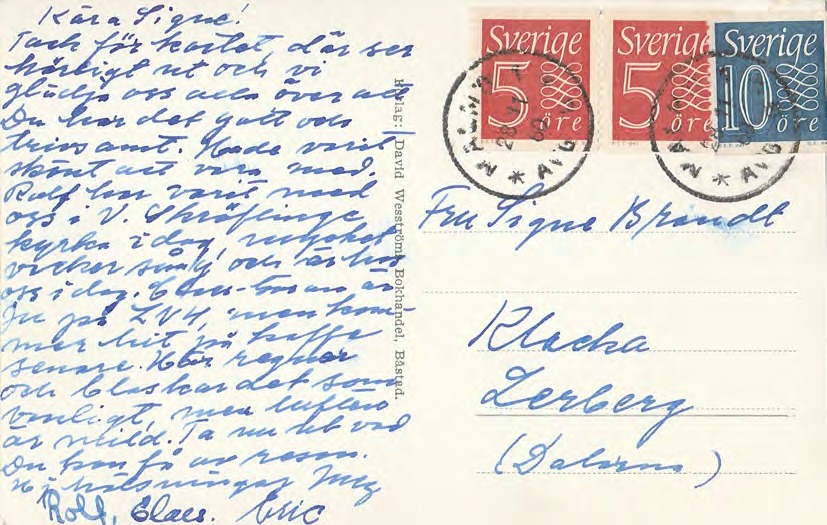 Kära Signe!
Tack för kortet, där ser
härligt ut och vi
glädja oss alla över att
Du har det gott och
trivsamt. Hade varit
skönt att vara med.
Rolf har varit med
oss i V. Skräflinge
kyrka i dag, mycket
vacker sång och är hos
oss i dag. Claes- är
ju på LV4, men kom-
mer hit på kaffe
senare. Här regnar
och blaskar det som
vanligt, men luften
är mild. Ta nu ut vad
Du kan få av resan.
hälsningar
Rolf, Claes. Eric
Förlag: David Wesströms Bokhandel, Båstad.
Sverige
5
öre
Sverige
5
öre
Sverige
10
öre
MALMÖ 1
28 11
60
AVG
MALMÖ 1
28 11
AVG
Fru Signe Brandt
Klacka
Lerberg
(Dalarna)